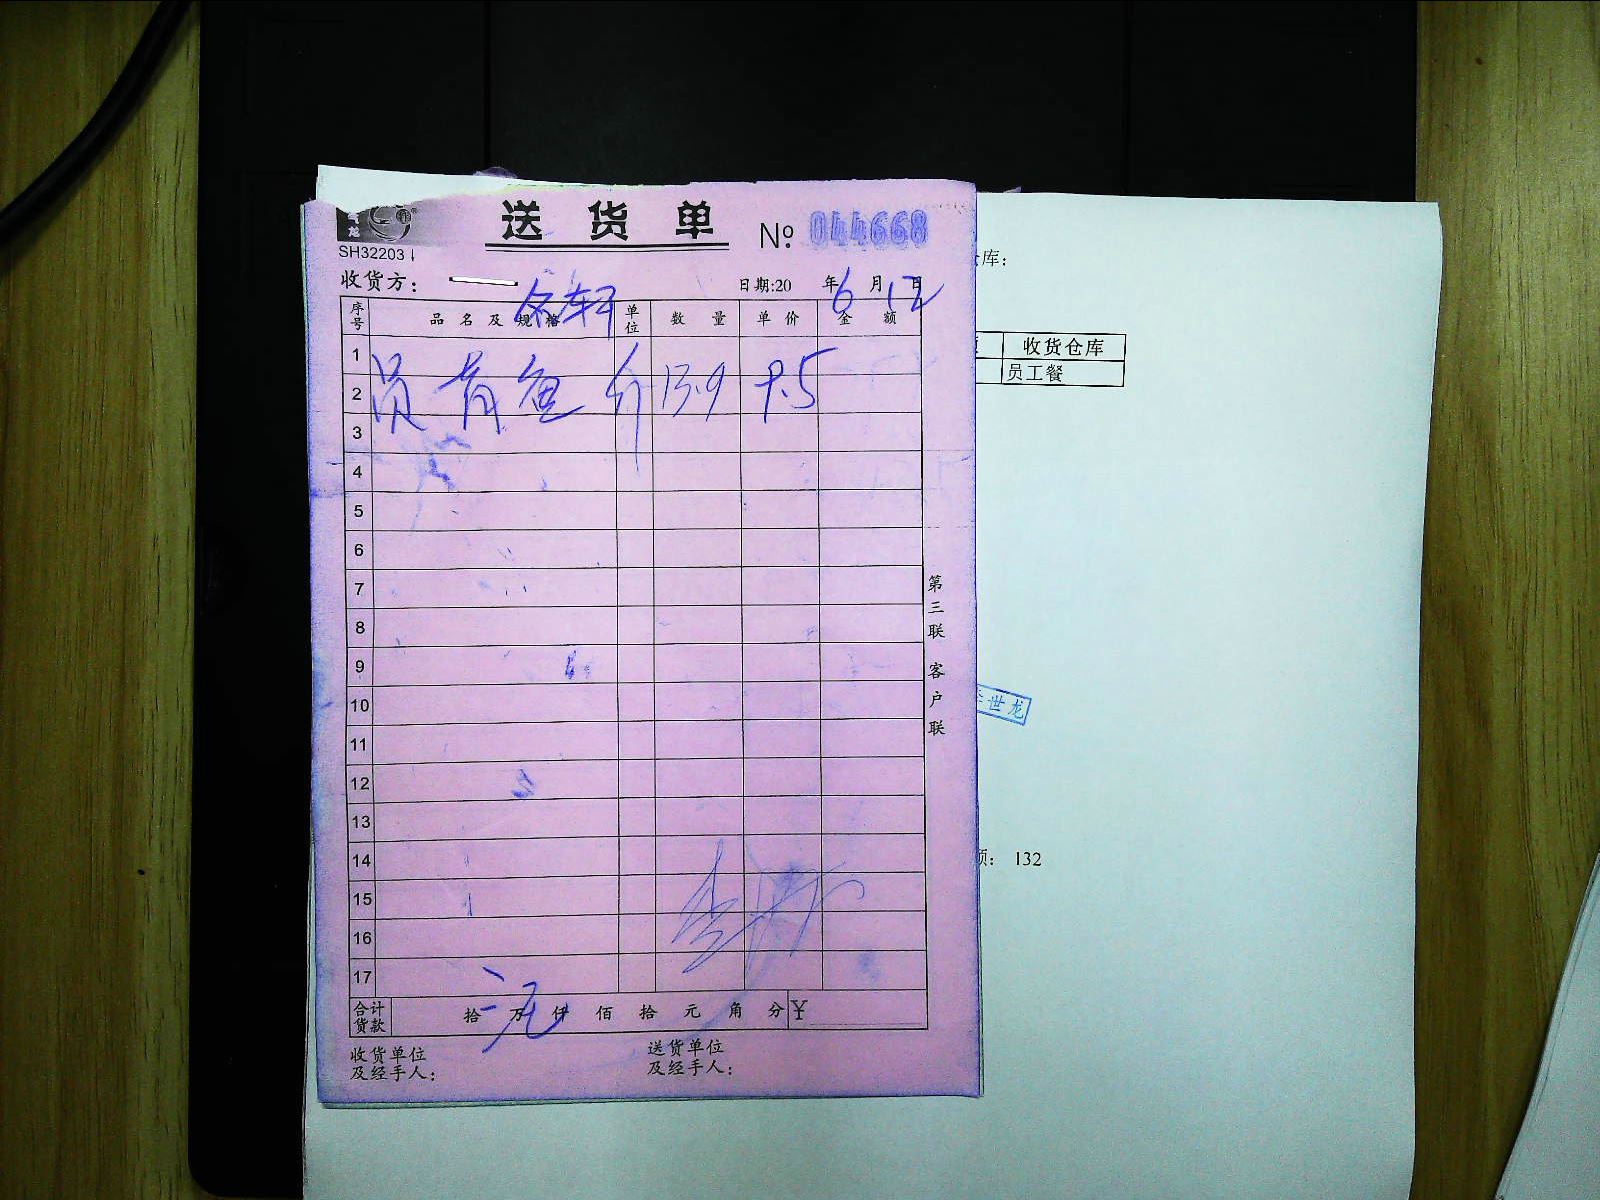 送货单 № 044668
SH32203
收货方： 名轩 日期:20 年 6 月 12 日
序号 品名及规格 单位 数量 单价 金额
1
2 员 青鱼 斤 13.9 9.5
3
4
5
6
7
8
9
10
11
12
13
14
15
16
17
合计货款 拾 万 仟 佰 拾 元 角 分 ¥
收货单位及经手人： 送货单位及经手人：
第三联 客户联
库：
收货仓库
员工餐
世龙
132